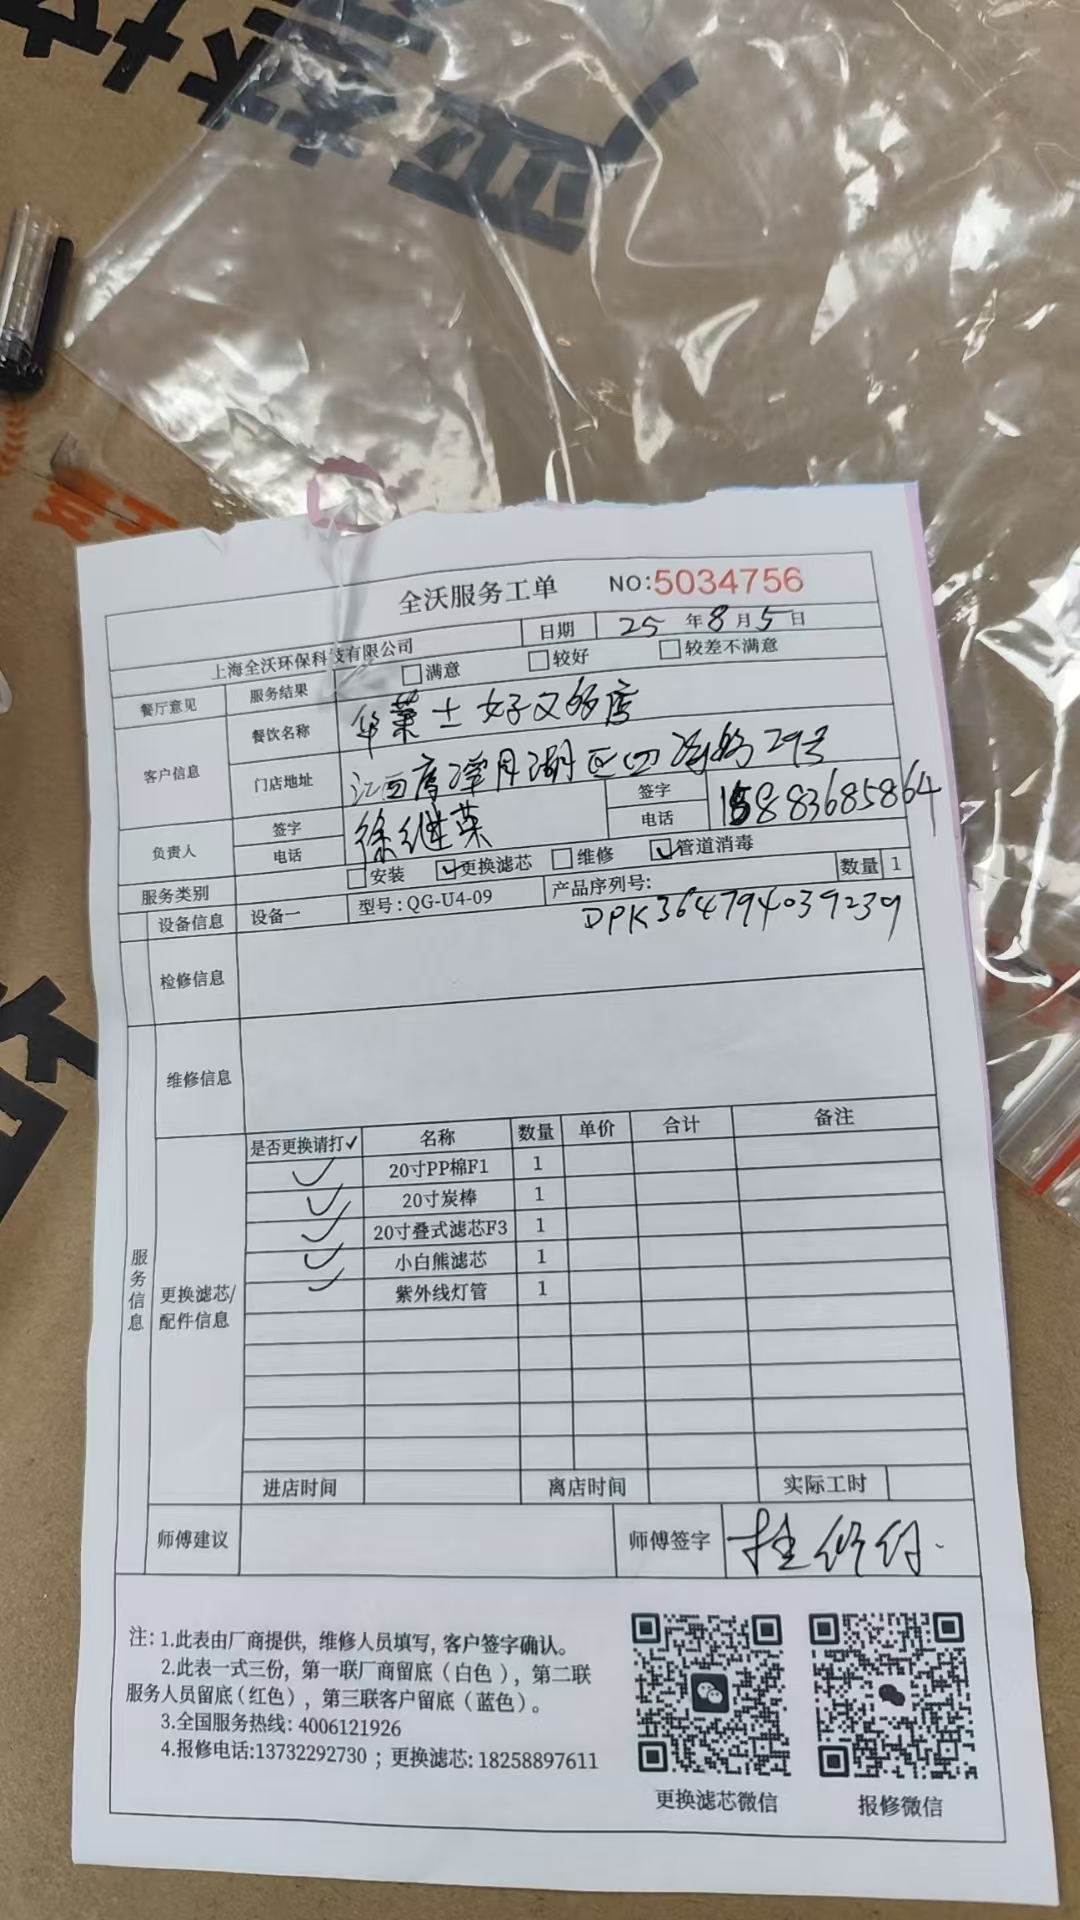 全沃服务工单 NO:5034756
上海全沃环保科技有限公司 日期 25 年 8 月 5 日
餐厅意见 服务结果 满意 较好 较差不满意
客户信息 餐饮名称 华莱士好又多店
门店地址 江西鹰潭月湖区四海路29号
负责人 签字 徐继菜 签字
电话 电话 15883685864
服务类别 安装 ✓更换滤芯 维修 ✓管道消毒
设备信息 设备一 型号:QG-U4-09 产品序列号: DPK364794039239 数量 1
检修信息
维修信息
服务信息
更换滤芯/配件信息
是否更换请打✓ 名称 数量 单价 合计 备注
✓ 20寸PP棉F1 1
✓ 20寸炭棒 1
✓ 20寸叠式滤芯F3 1
✓ 小白熊滤芯 1
✓ 紫外线灯管 1
进店时间 离店时间 实际工时
师傅建议 师傅签字
注: 1.此表由厂商提供, 维修人员填写, 客户签字确认。
2.此表一式三份, 第一联厂商留底(白色), 第二联
服务人员留底(红色), 第三联客户留底(蓝色)。
3.全国服务热线: 4006121926
4.报修电话:13732292730 ; 更换滤芯: 18258897611
更换滤芯微信 报修微信